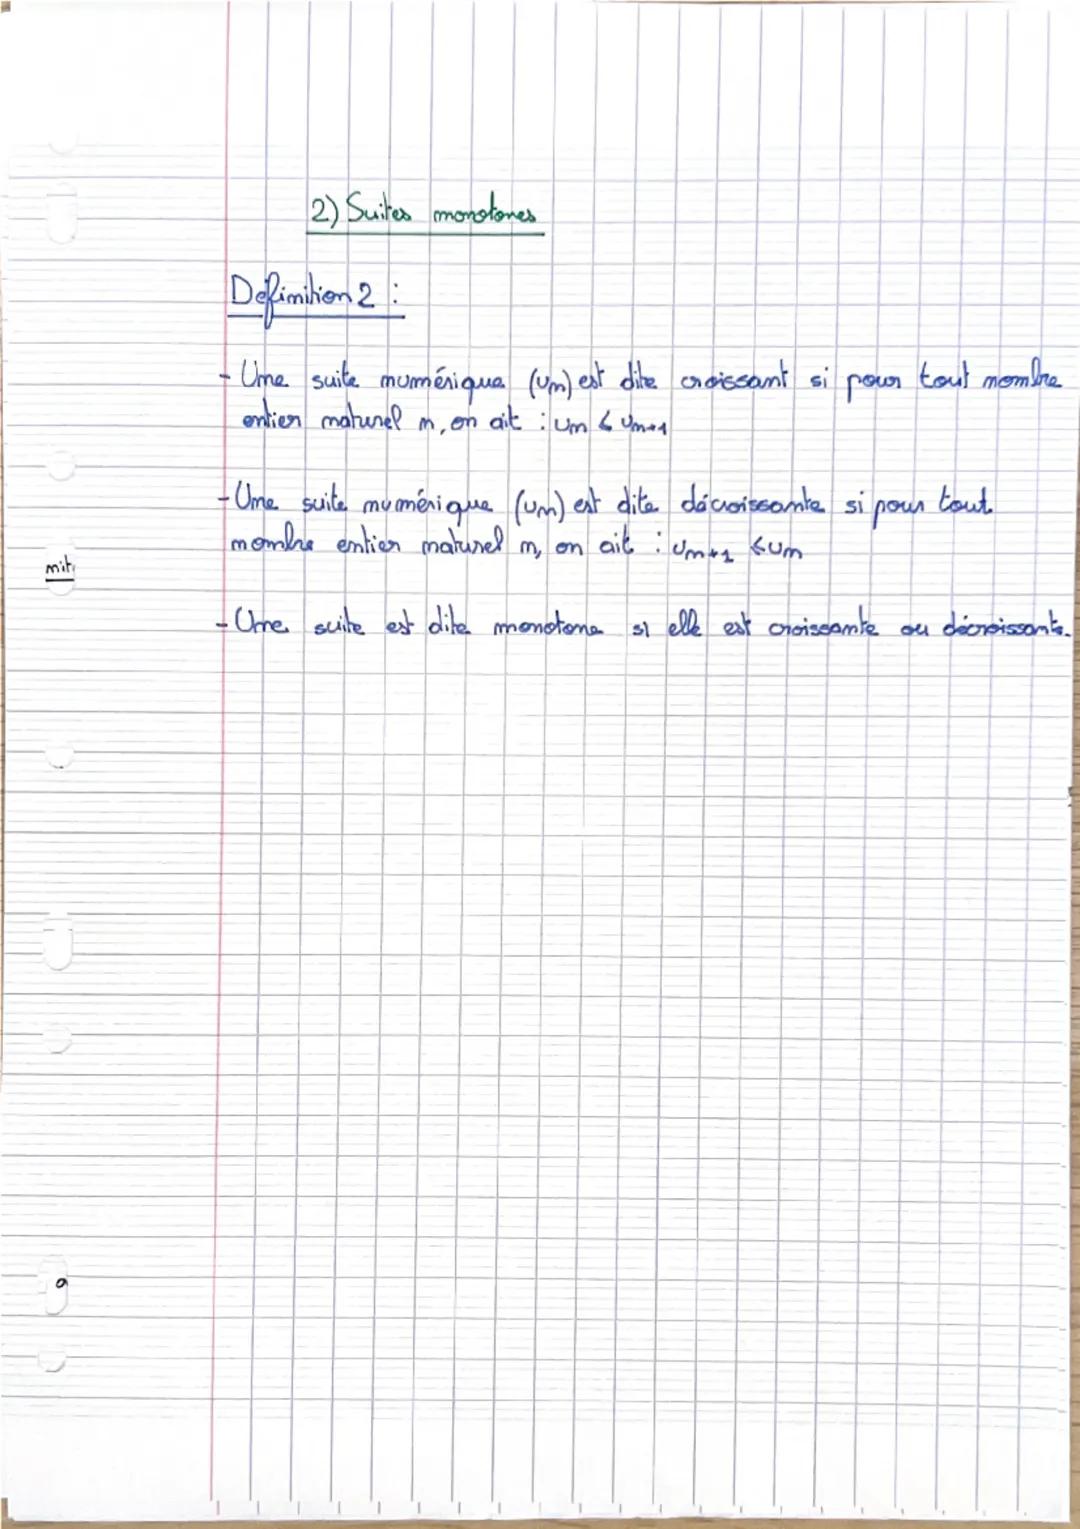 2) Suites monotones
Definition 2 :
- Une suite numérique (un) est dite croissant si pour tout nombre
entier naturel n, on ait : un ≤ un+1
- Une suite numérique (un) est dite décroissante si pour tout
nombre entier naturel n, on ait : un+1 ≤ un
mit
- Une suite est dite monotone si elle est croissante ou décroissante.